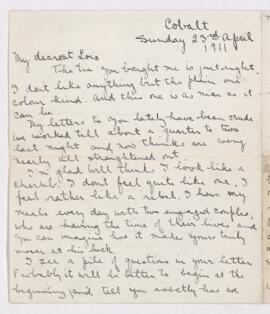 Cobalt
Sunday 23rd April
1911
My dearest Lois
The tie you bought me is just right.
I don't like anything but the plain one
colour kind. And this one is as nice as it
can be.
My letters to you lately have been crude.
We worked till about a quarter to two
last night and now things are very
nearly all straightened out.
I'm glad Will thinks I look like a
cherub. I don't feel quite like one. I
feel rather like a rebel. I have my
meals every day with two engaged couples,
who are having the time of their lives and
you can imagine how it makes yours truly
swear at his luck.
I see a file of questions in your letter
Probably it will be better to begin at the
beginning and tell you exactly how we